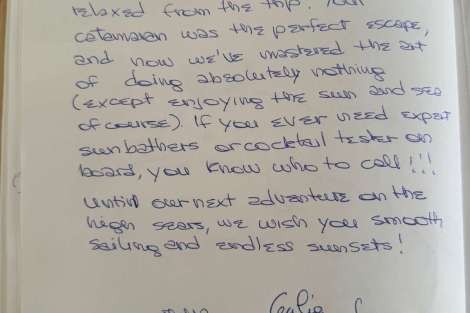 relaxed from the trip. Your
catamaran was the perfect escape,
and now we've mastered the art
of doing absolutely nothing
(except enjoying the sun and sea
of course). If you ever need expert
sunbathers or cocktail tester on
board, you know who to call!!!
Until our next adventure on the
high sears, we wish you smooth
sailing and endless sunsets!